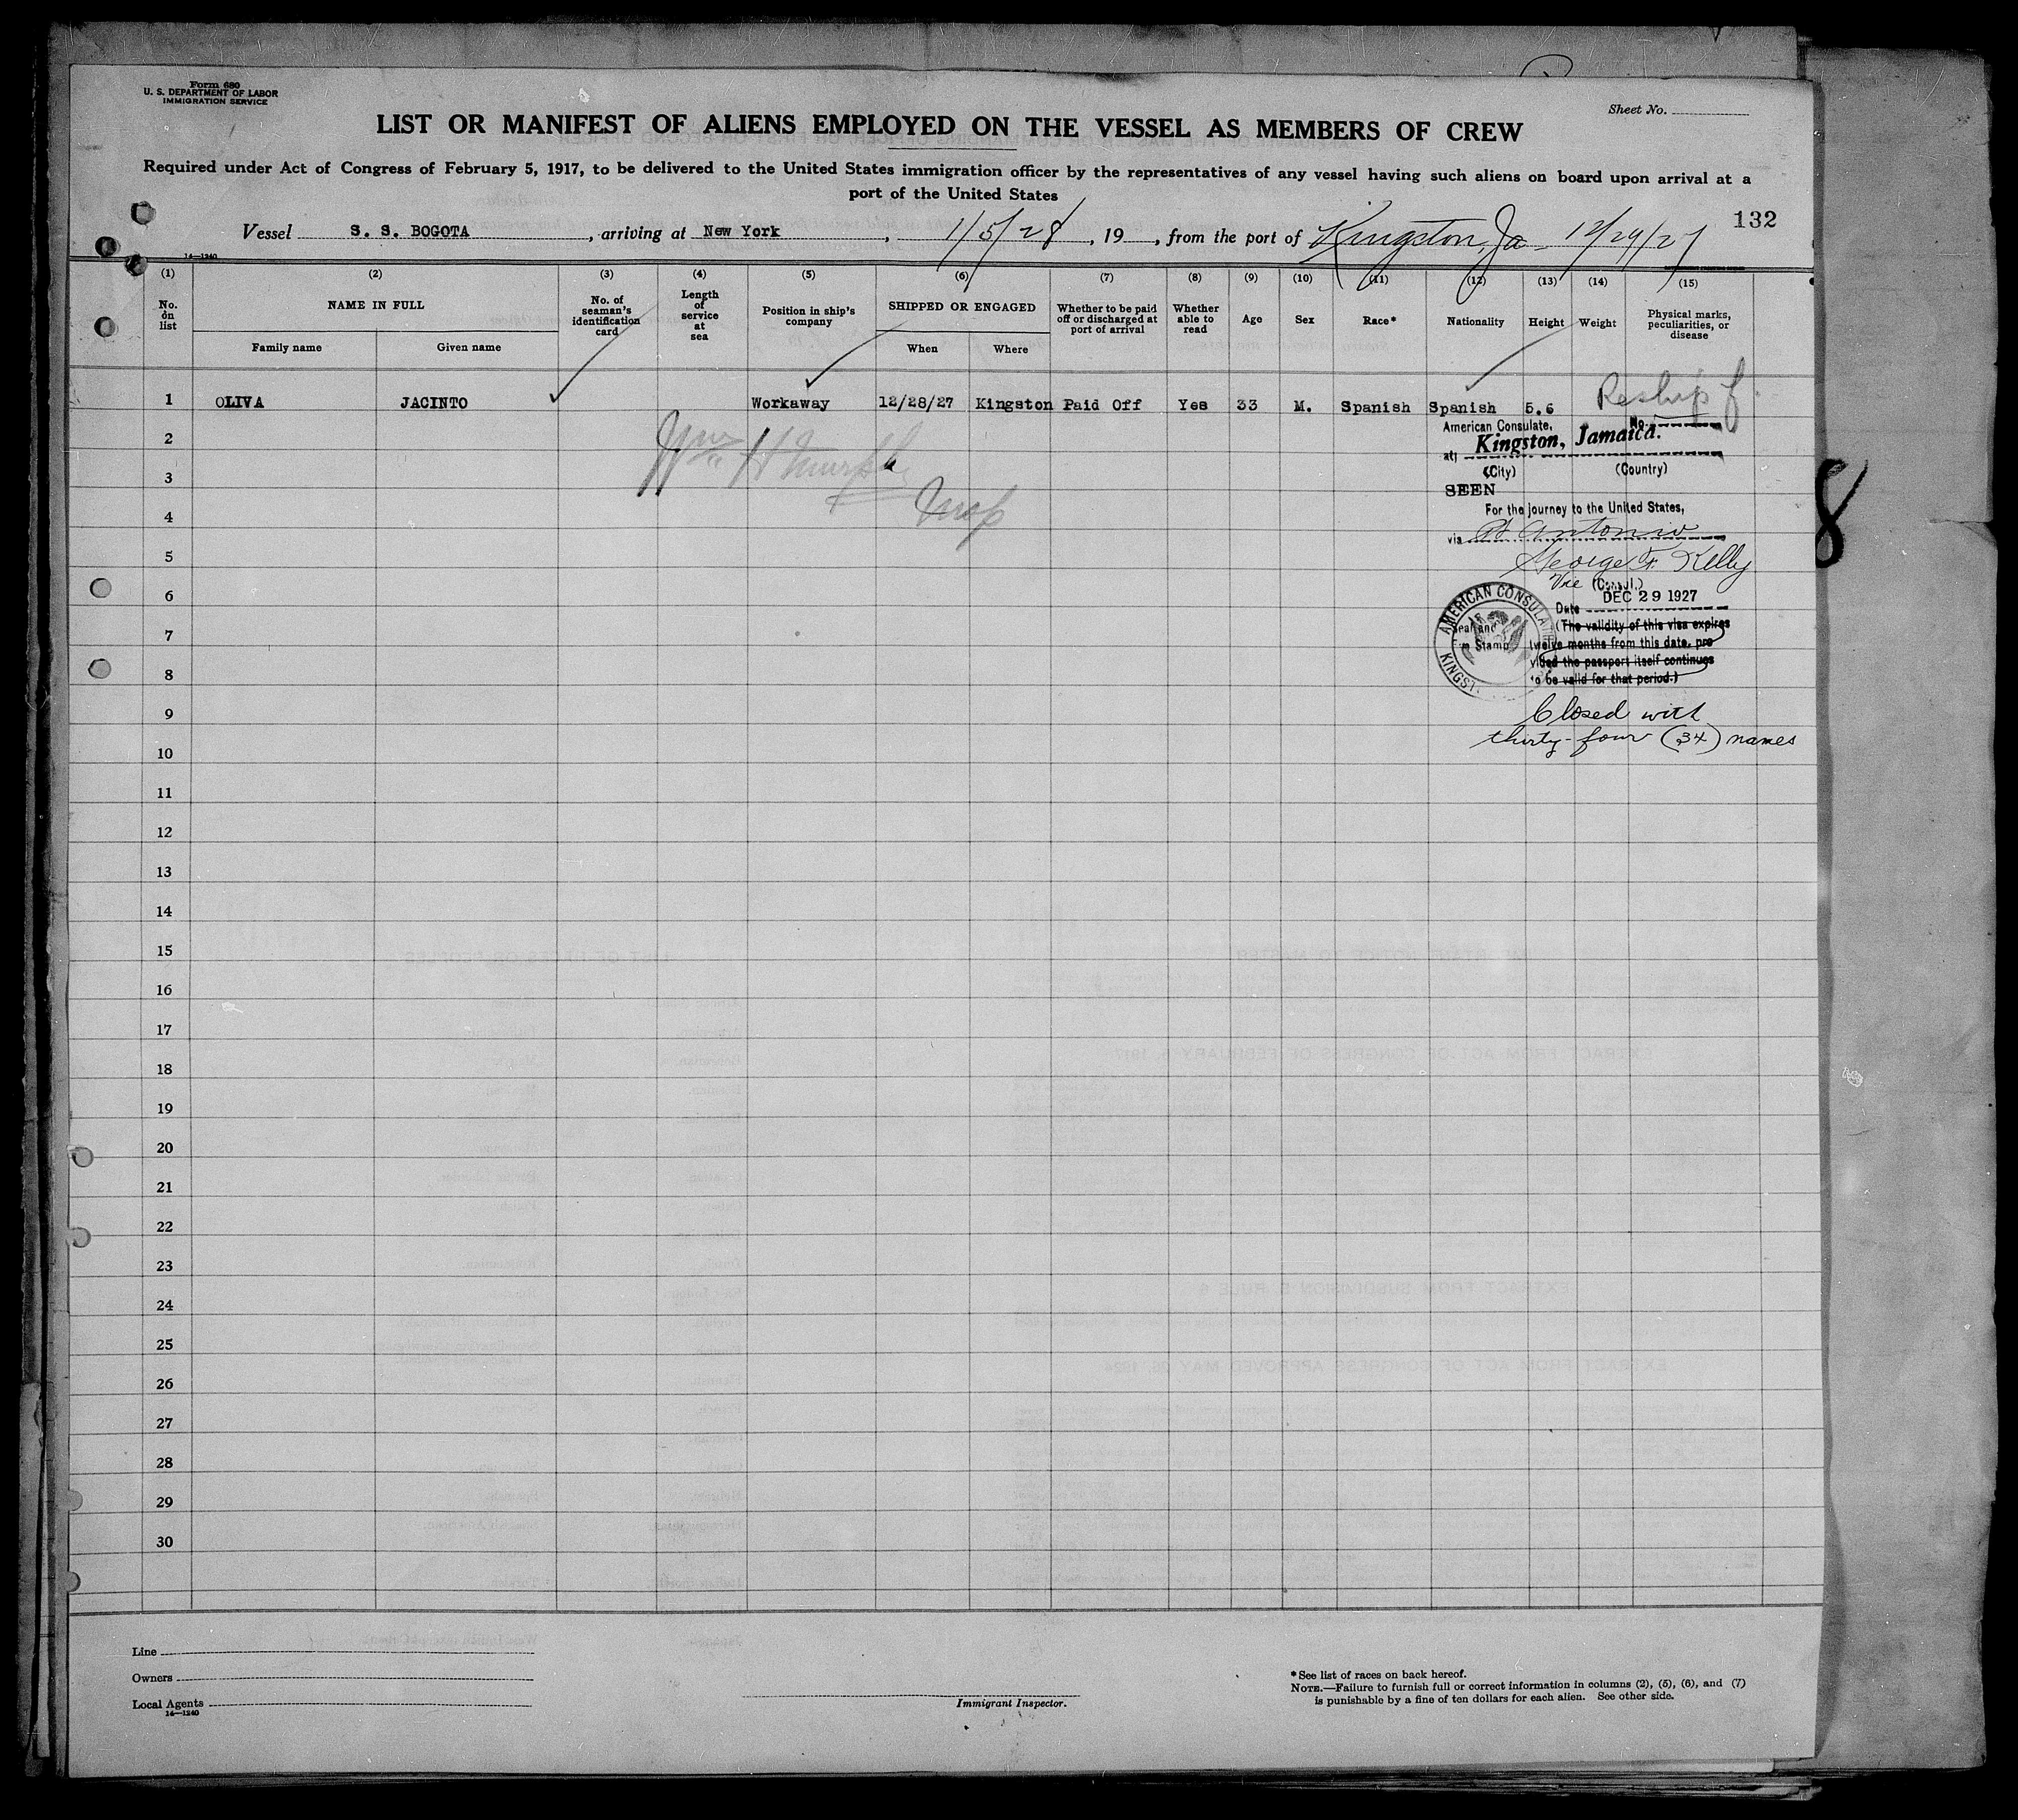 Form 680
U. S. DEPARTMENT OF LABOR
IMMIGRATION SERVICE
Sheet No.
LIST OR MANIFEST OF ALIENS EMPLOYED ON THE VESSEL AS MEMBERS OF CREW
Required under Act of Congress of February 5, 1917, to be delivered to the United States immigration officer by the representatives of any vessel having such aliens on board upon arrival at a
port of the United States
132
Vessel S. S. BOGOTA, arriving at New York, 1/5/28, 19, from the port of Kingston, Ja - 12/29/27
14—1240
(1) (2) (3) (4) (5) (6) (7) (8) (9) (10) (11) (12) (13) (14) (15)
No. on list
NAME IN FULL
Family name
Given name
No. of seaman's identification card
Length of service at sea
Position in ship's company
SHIPPED OR ENGAGED
When
Where
Whether to be paid off or discharged at port of arrival
Whether able to read
Age
Sex
Race*
Nationality
Height
Weight
Physical marks, peculiarities, or disease
1 OLIVA JACINTO Workaway 12/28/27 Kingston Paid Off Yes 33 M. Spanish Spanish 5.6 Reship f
2
3
4
5
6
7
8
9
10
11
12
13
14
15
16
17
18
19
20
21
22
23
24
25
26
27
28
29
30
Wm H Murphy
Insp
American Consulate, No.
at Kingston, Jamaica.
(City) (Country)
SEEN
For the journey to the United States,
via Pt Antonio
George F. Kelly
Vice (Consul.)
Date DEC 29 1927
AMERICAN CONSULATE
KINGST
Seal and
Stamp
(The validity of this visa expires
twelve months from this date, pro
vided the passport itself continues
to be valid for that period.)
Closed with
thirty-four (34) names
8
Line
Owners
Local Agents
14—1240
Immigrant Inspector.
*See list of races on back hereof.
NOTE.—Failure to furnish full or correct information in columns (2), (5), (6), and (7)
is punishable by a fine of ten dollars for each alien. See other side.